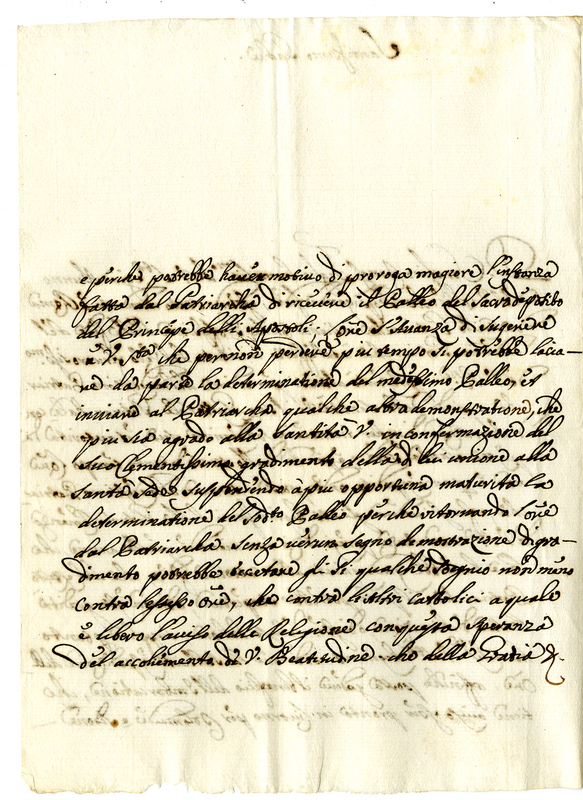 e perche potrebbe haver motivo di proroga magiore l'instanza
fatta dal Patriarcha di ricevere il Palleo del Sacro deposito
del Principe delli Apostoli. L'ore s'avanza di
a V. Stà che per non perdere piu tempo si potrebbe lascia-
re da parte la determinatione del medessimo Palleo, et
inviare al Patriarcha qualche altra demonstratione, che
piu sia agrado alla Santità V. in confermazione del
suo Clementissimo gradimento della di lui unione alla
Santa Sede, suspendendo à piu opportuna maturità la
determinatione del sodto. Palleo perche ritornando l'ore
dal Patriarcha senza verun segno demostrazione di gra-
dimento potrebbe eccetare gli Si qualche Sdegnio non meno
contra l'stesso ore, che contra li Altri Catholici a quale
è libero della Religione con questa Speranza
del accoglimento di V. Beatitudine che della Gratia &.